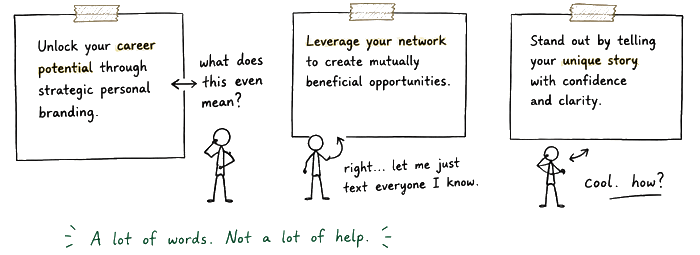 Unlock your career
potential through
strategic personal
branding.
what does
this even
mean?
Leverage your network
to create mutually
beneficial opportunities.
right... let me just
text everyone I know.
Stand out by telling
your unique story
with confidence
and clarity.
Cool. how?
A lot of words. Not a lot of help.